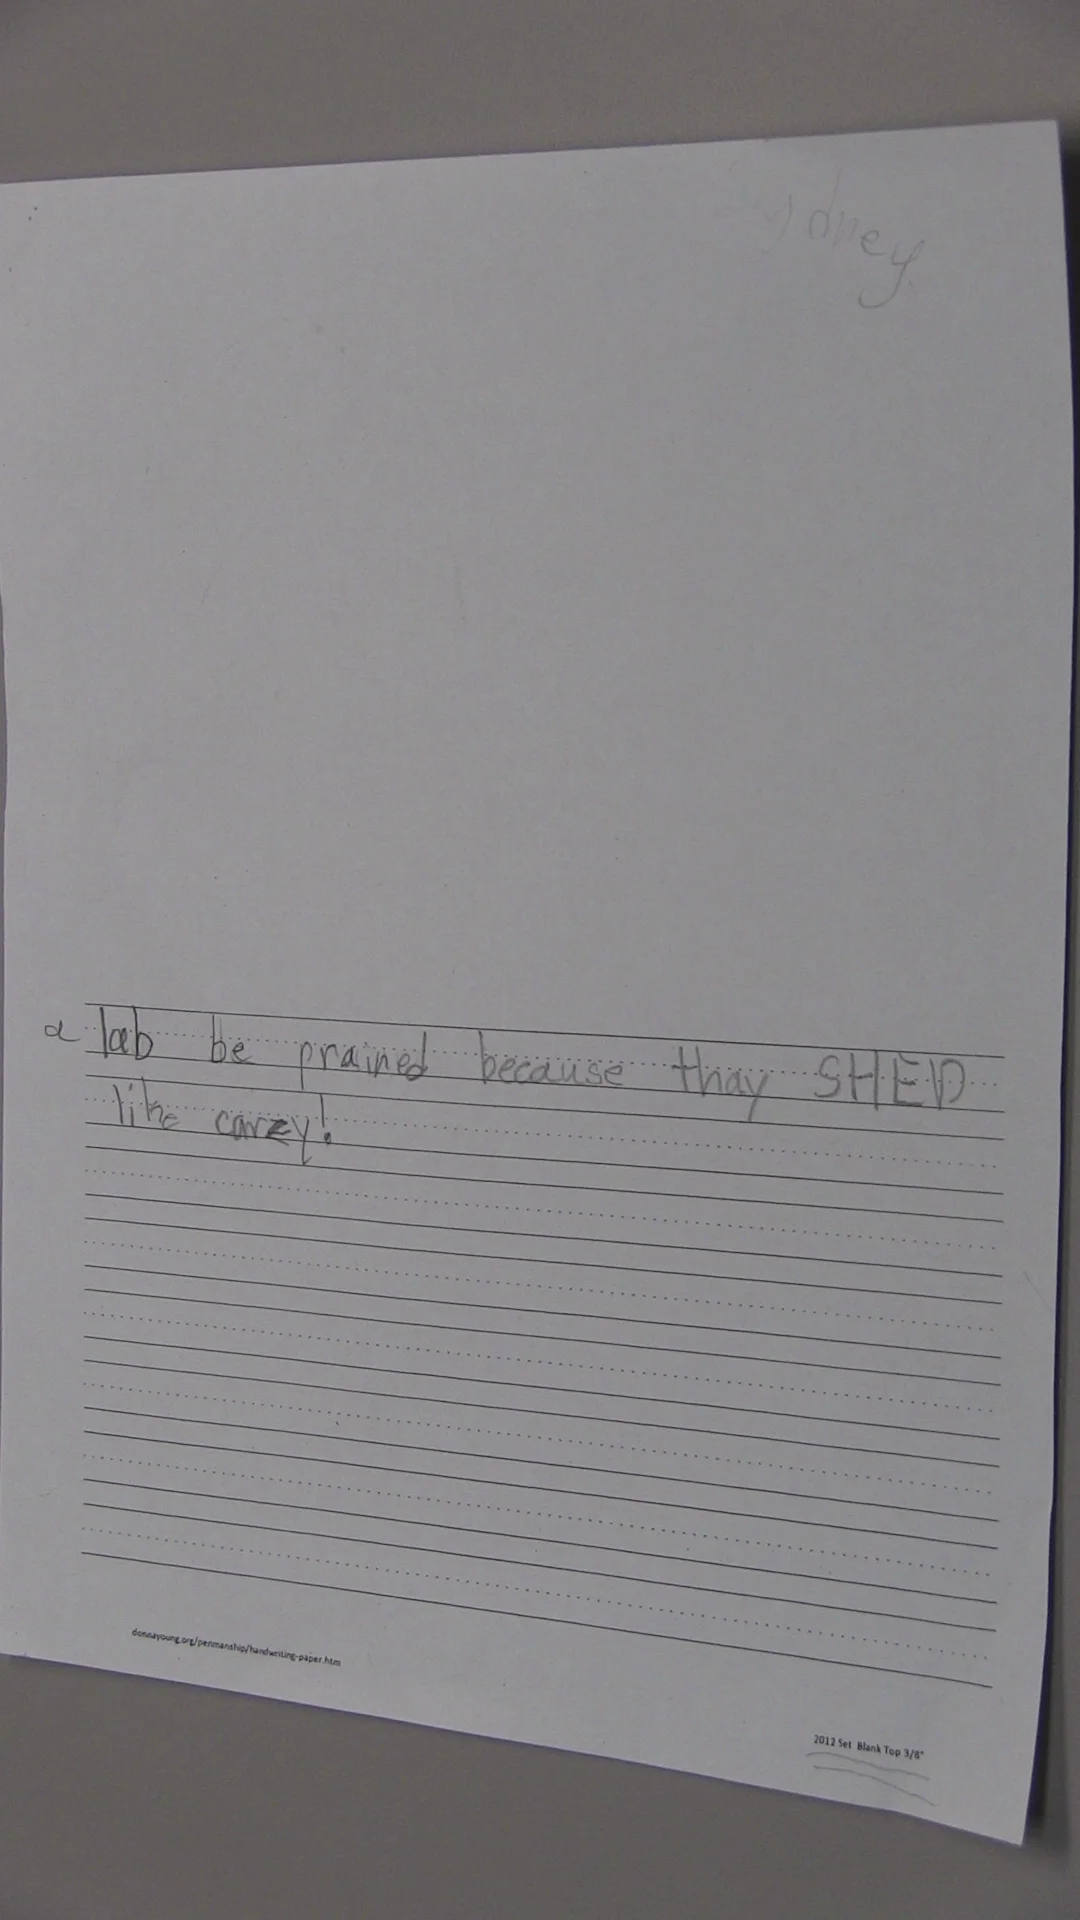 ydney
a lab be prained because thay SHED
like carzy!
donnayoung.org/penmanship/handwriting-paper.htm
2012 Set Blank Top 3/8"